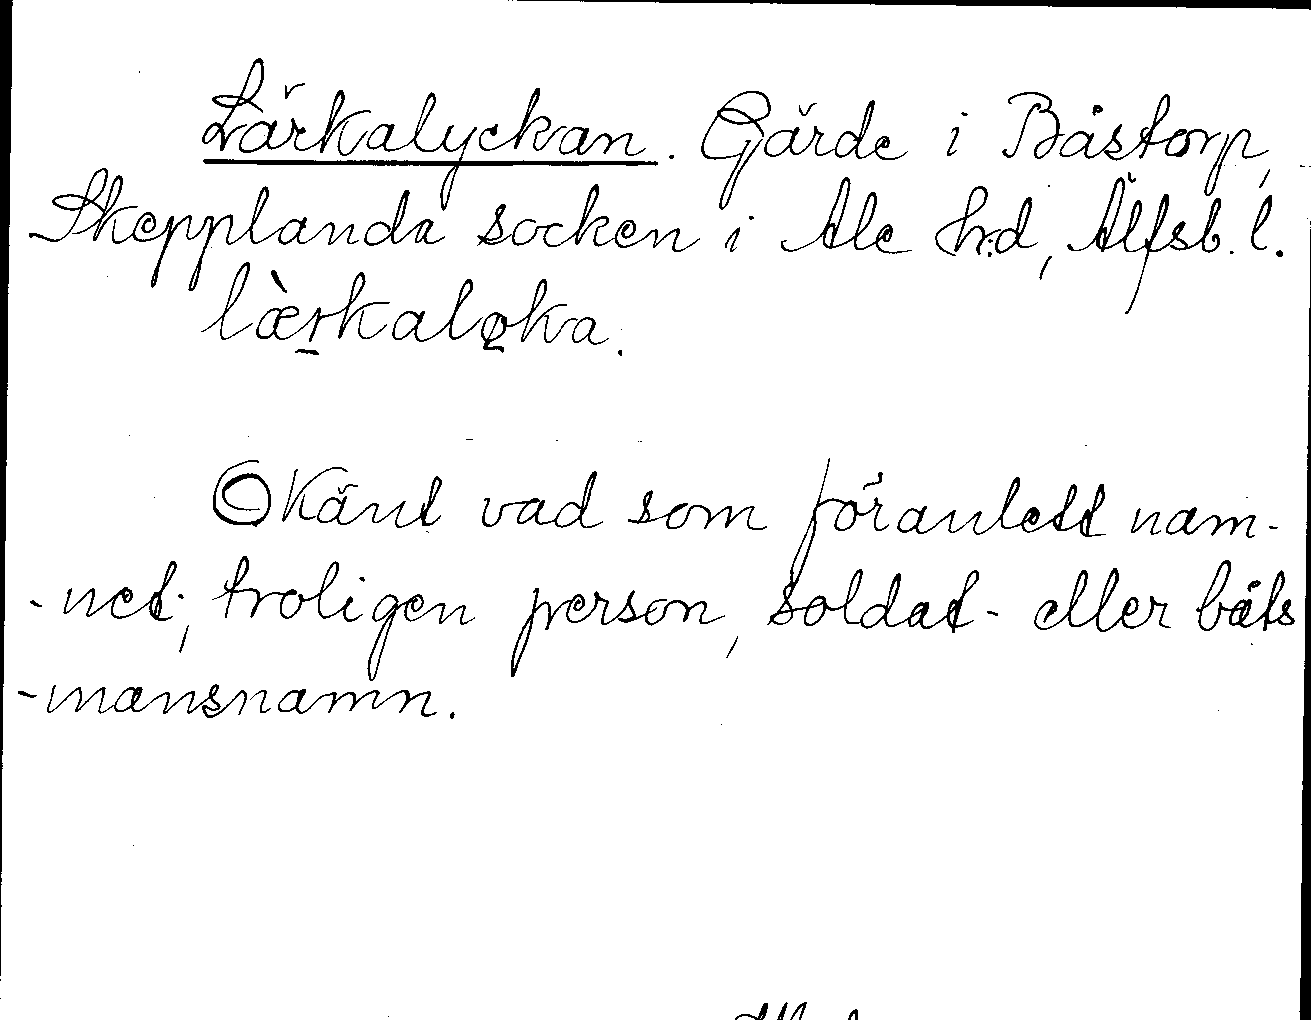 Lärkalyckan. Gärde i Båstorp,
Skepplanda socken i Ale h:d, Älfsb. l.
lærkaloka.
Okänt vad som föranlett nam-
-net; troligen person, soldat- eller båts
-mansnamn.